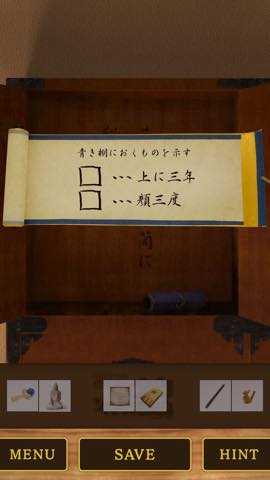 青き棚におくものを示す
□…上に三年
□…顔三度
筒に
MENU
SAVE
HINT